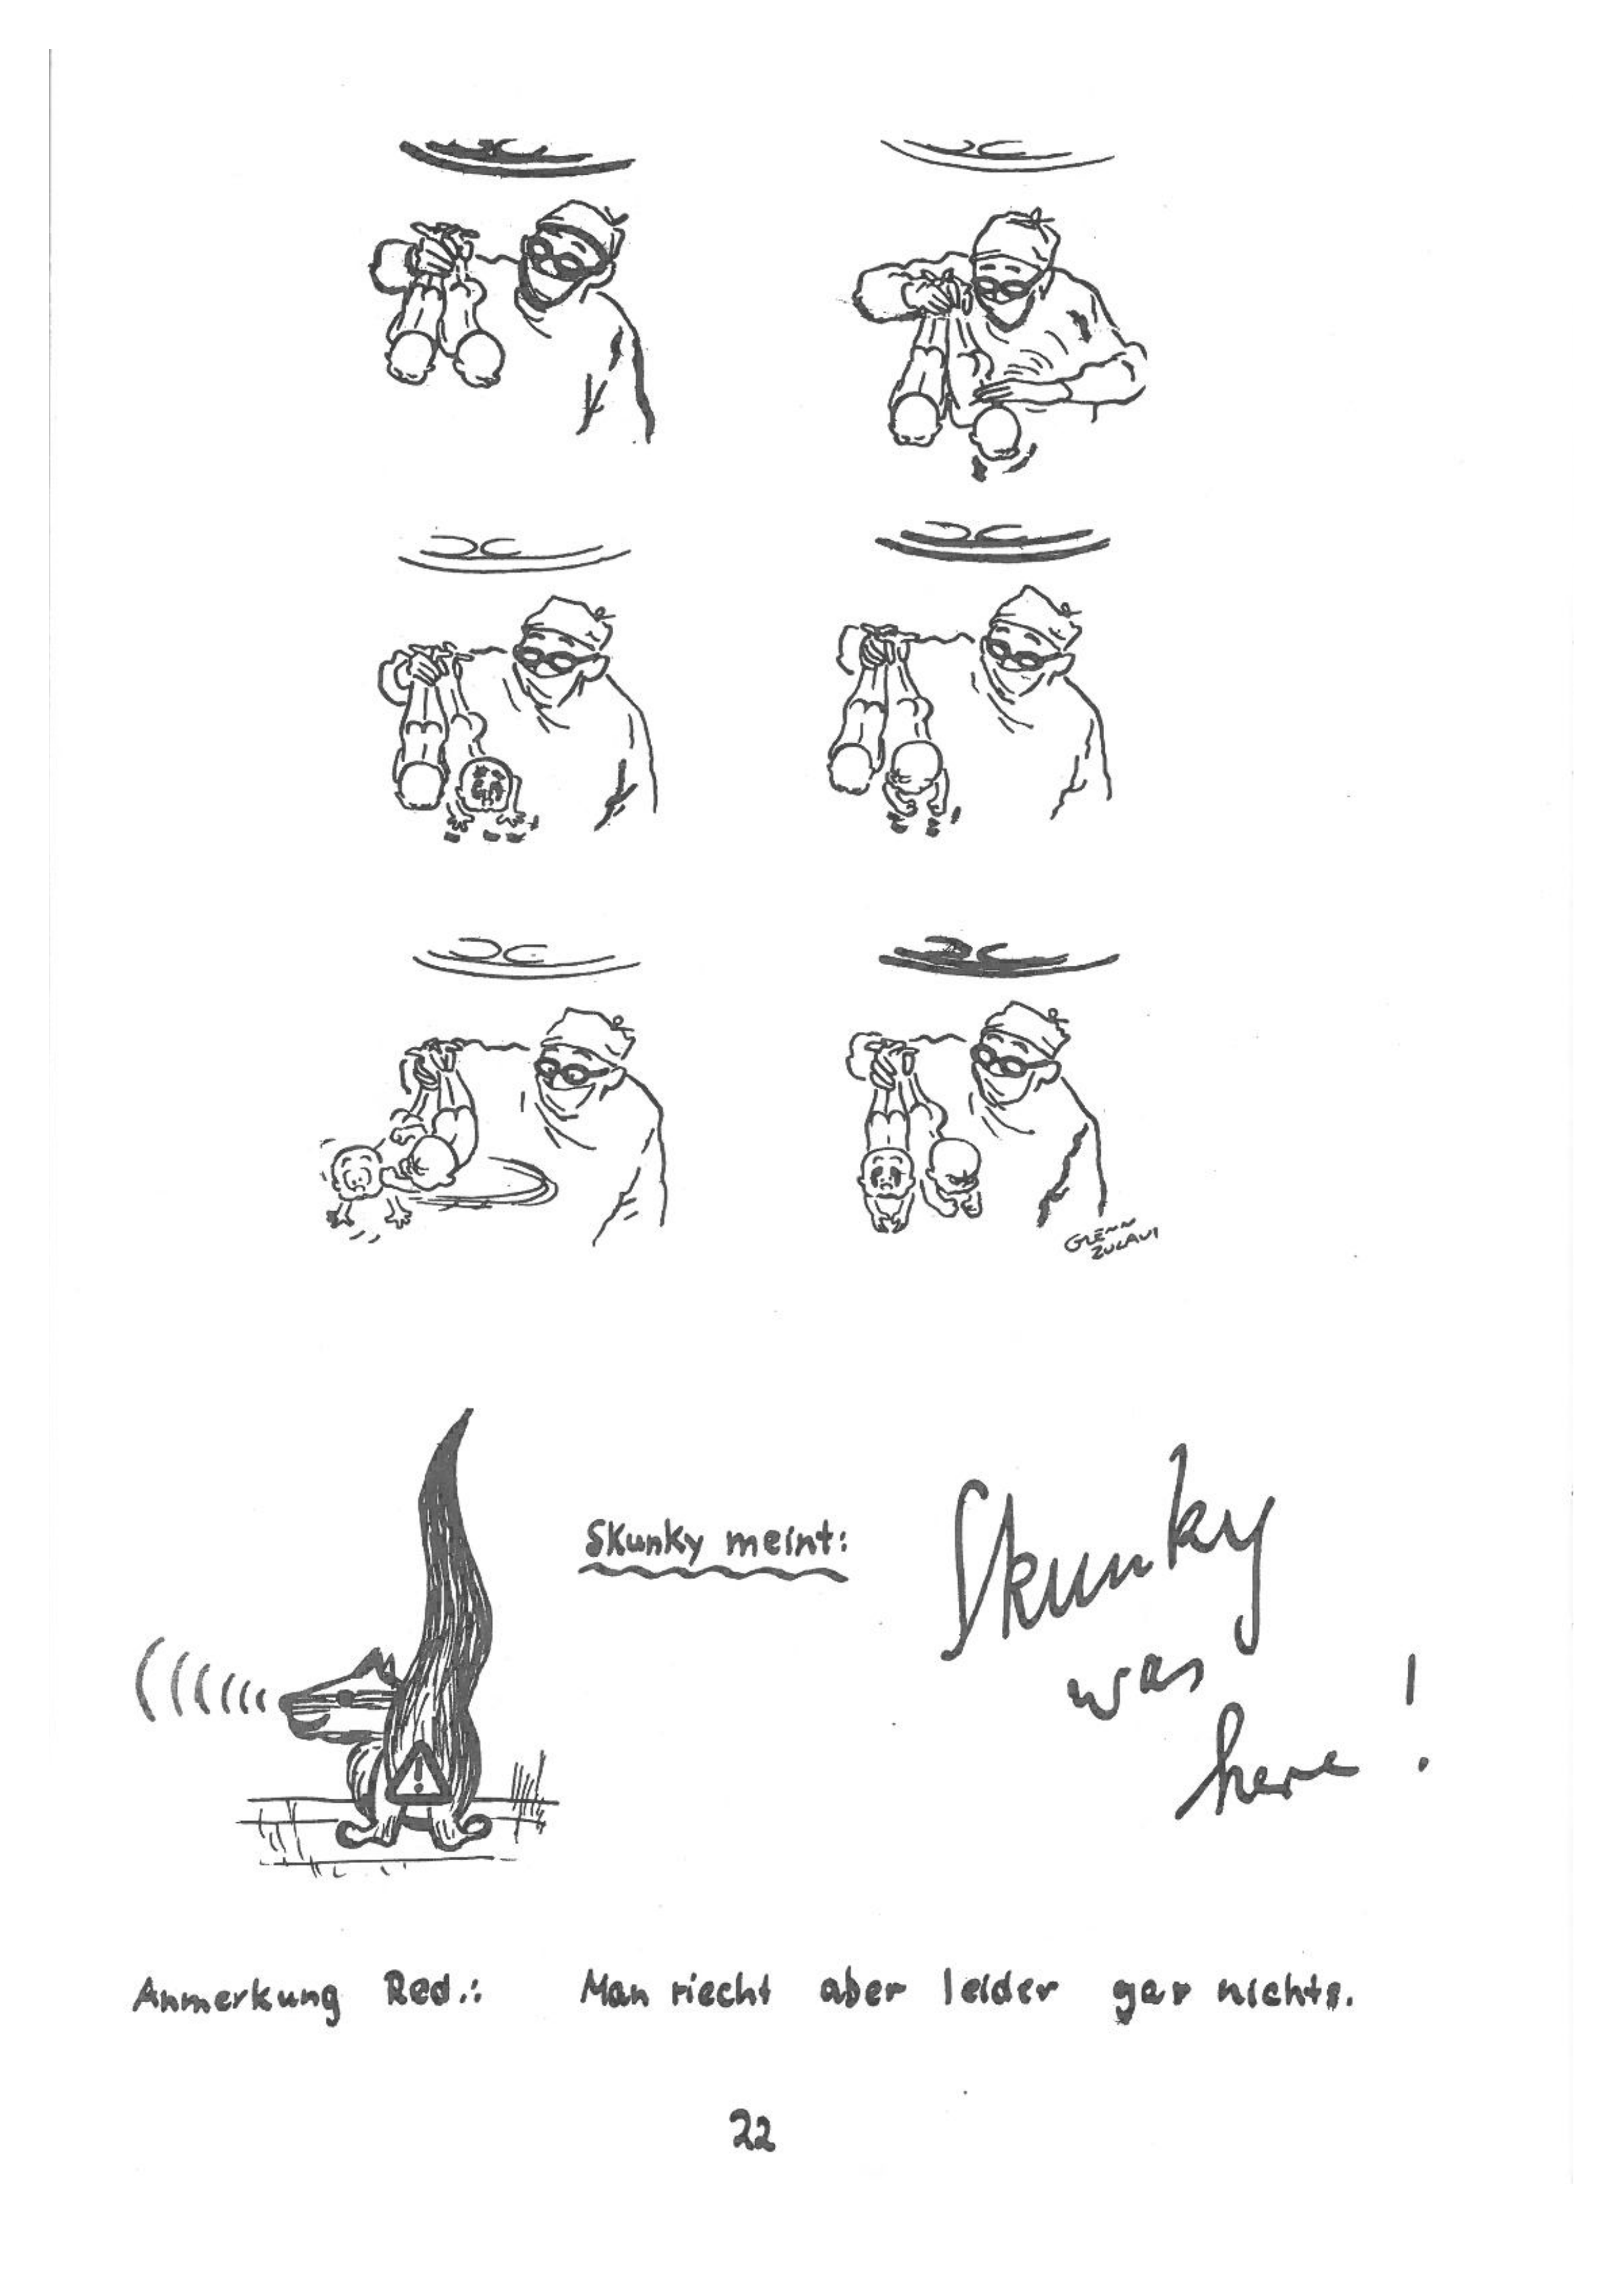 GLENN
Skunky meint:
Skunky
was
here !
Anmerkung Red.: Man riecht aber leider gar nichts.
22